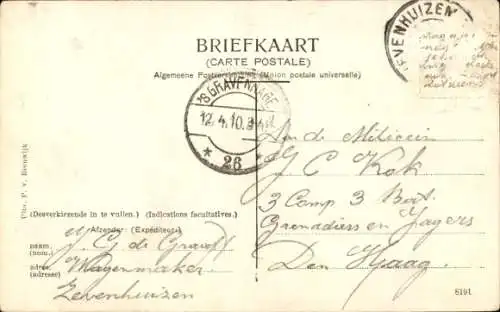 BRIEFKAART
(CARTE POSTALE)
Algemeene Postvereeniging (Union postale universelle)
EVENHUIZEN
'S GRAVENHAGE
12.4.10.
26
Aan de Milicien
J C Kok
3 Comp 3 Bat.
Grenadiers en Jagers
Den Haag
(Desverkiezende in te vullen.) (Indications facultatives.)
Afzender: (Expéditeur:)
naam:
(nom:)
J. G de Graaff
adres:
(adresse)
Wagenmaker.
Zevenhuizen
Uitg. P. v.
8191